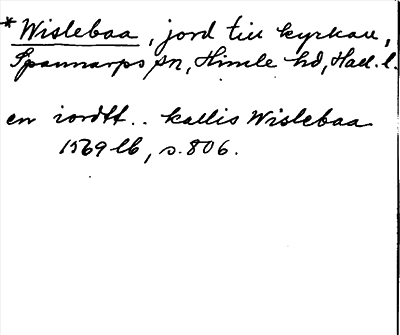 *Wislebaa, jord till kyrkan,
Spannarps sn, Himle hd, Hall. l.
en iordtt.. kallis Wislebaa
1569 lb, s. 806.